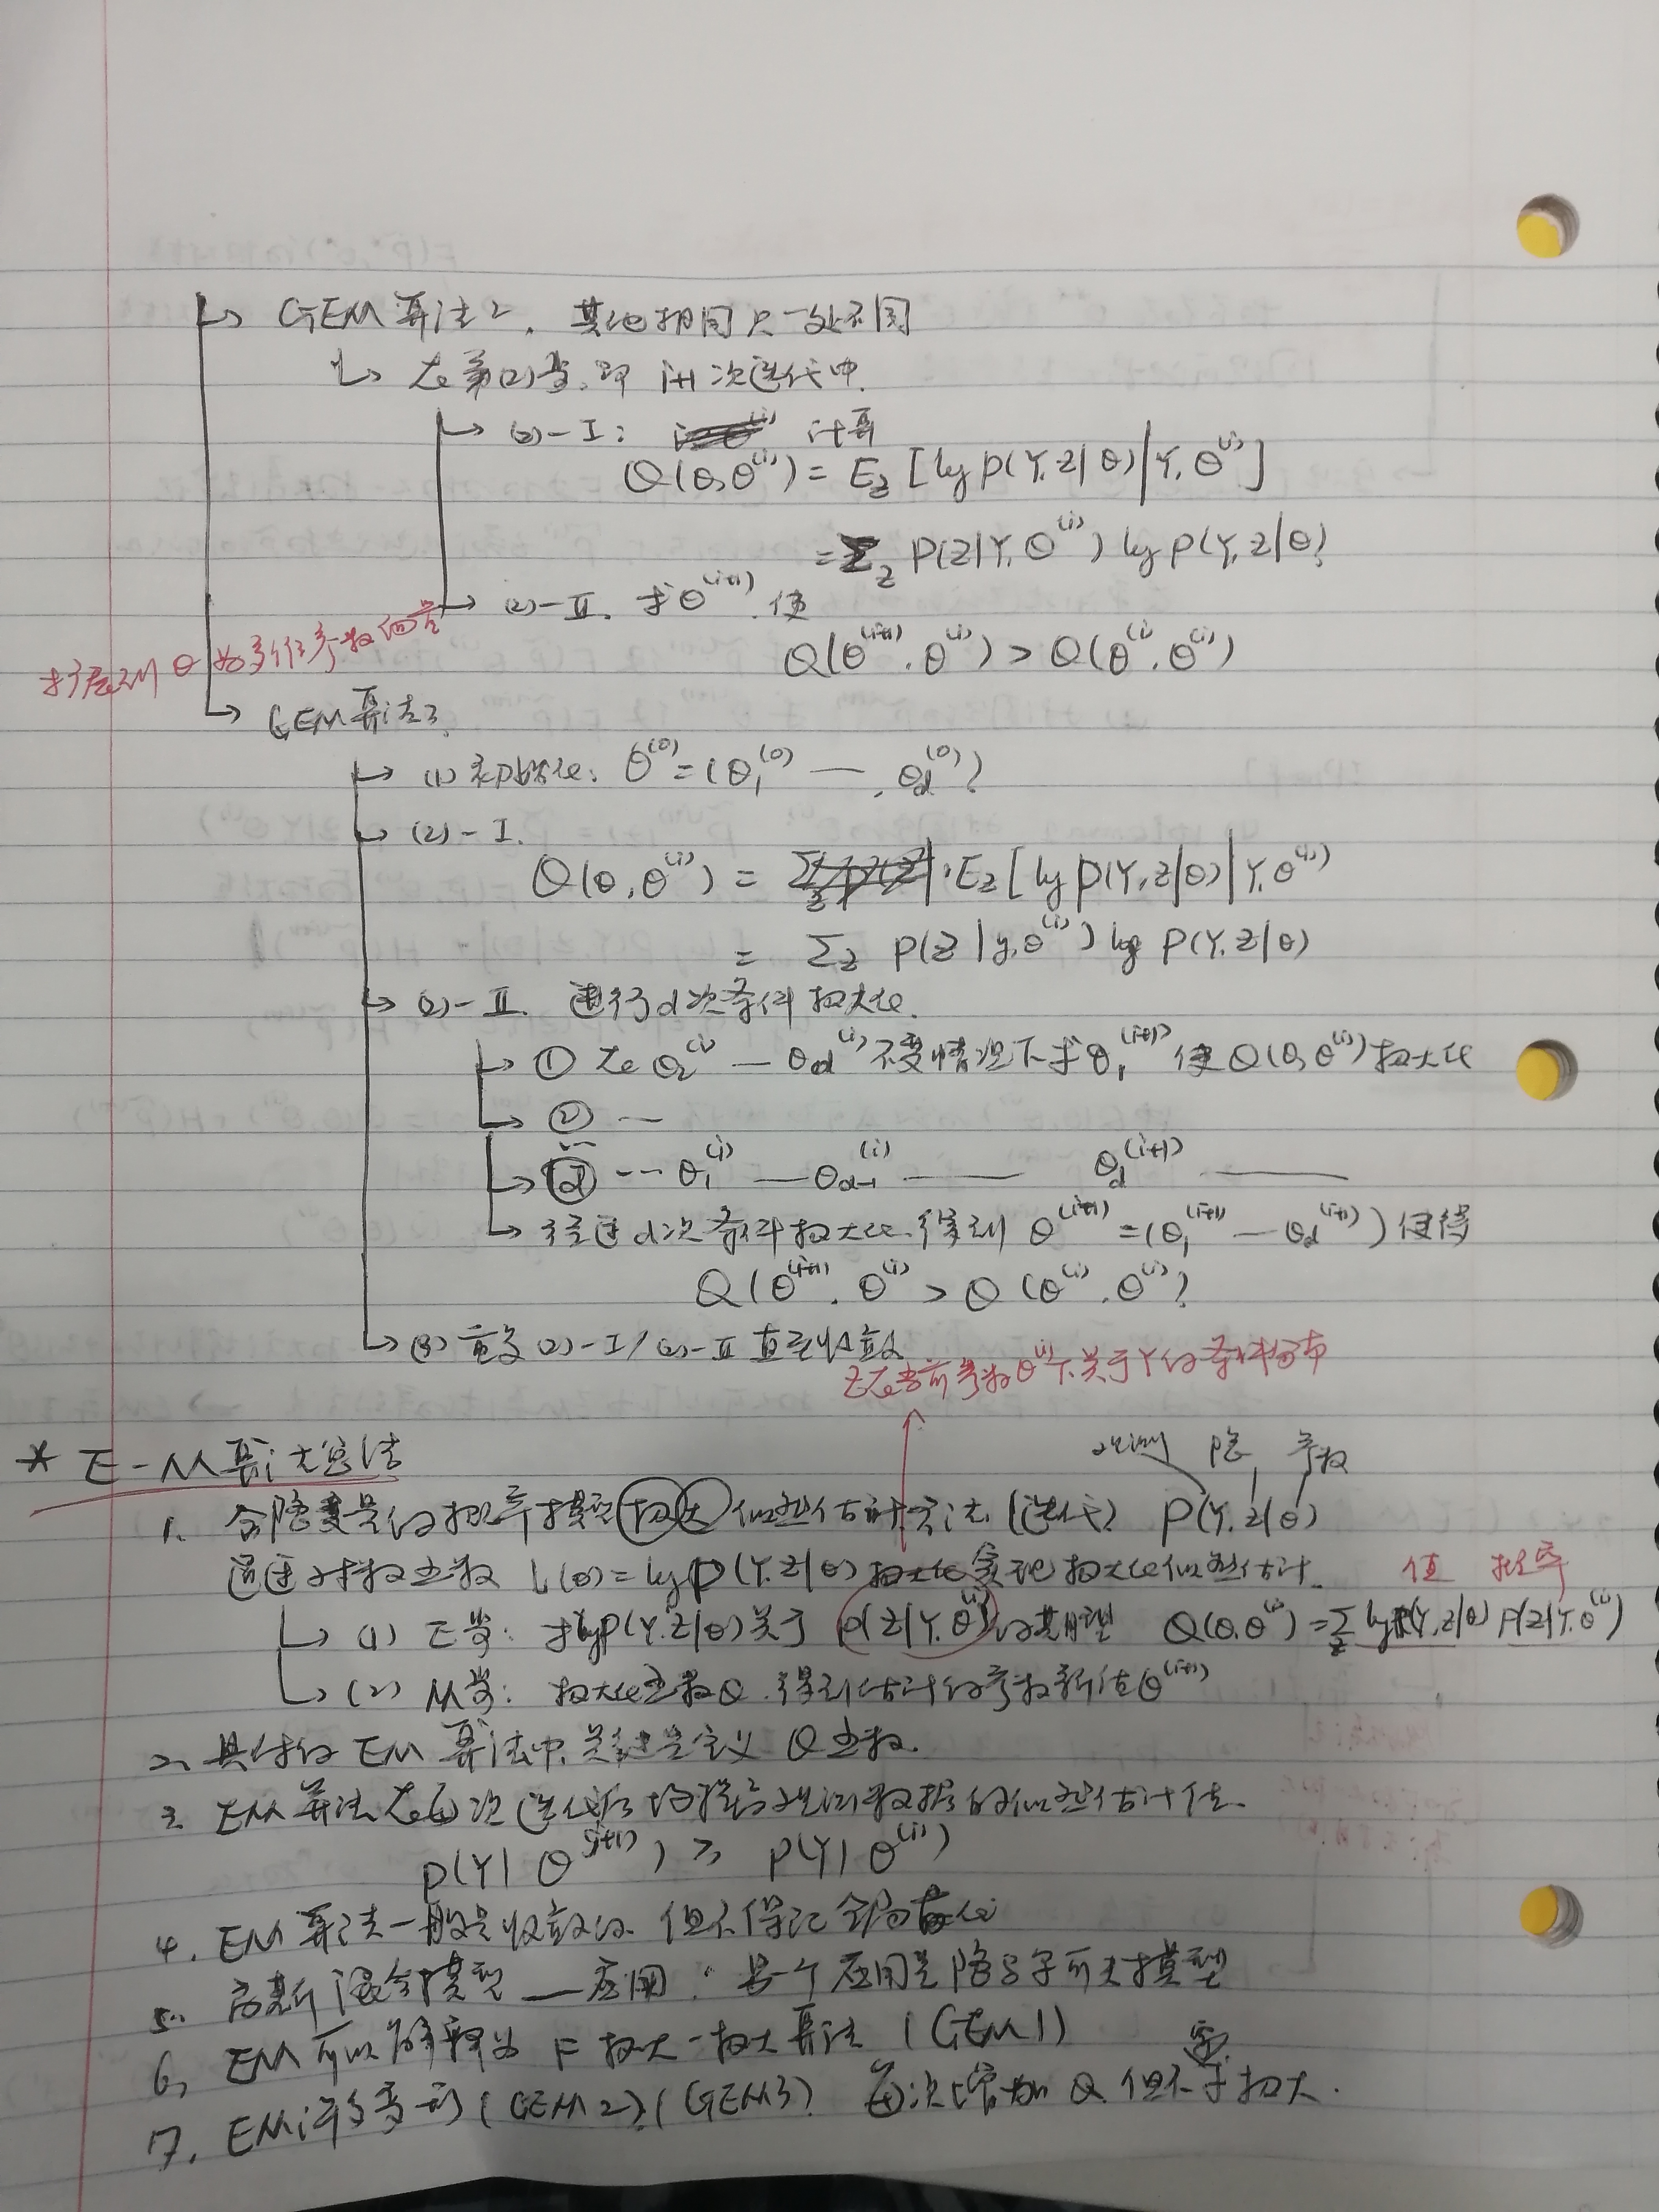 ↳ GEM算法2. 其他相同只一处不同
↳ 在第(2)步,即 i+1次迭代中.
↳ (2)-I: 计算
Q(θ,θ^(i)) = E_Z[log P(Y,Z|θ)|Y,θ^(i)]
= Σ_Z P(Z|Y,θ^(i)) log P(Y,Z|θ)
↳ (2)-II. 求θ^(i+1) 使
Q(θ^(i+1),θ^(i)) > Q(θ^(i),θ^(i))
扩展到θ为多维参数向量
↳ GEM算法3.
↳ (1) 初始化: θ^(0)=(θ_1^(0) — ,θ_d^(0))
↳ (2)-I.
Q(θ,θ^(i)) = E_Z[log P(Y,Z|θ)|Y,θ^(i))
= Σ_Z P(Z|y,θ^(i)) log P(Y,Z|θ)
↳ (2)-II. 进行d次条件极大化.
↳ ① 在θ_2^(i) — θ_d^(i)不变情况下求θ_1^(i+1) 使Q(θ,θ^(i))极大化
↳ ② —
↳ ⓓ --- θ_1^(i) — θ_{d-1}^(i) —— θ_d^(i+1) ——
↳ 经过d次条件极大化,得到 θ^(i+1)=(θ_1^(i+1) — θ_d^(i+1)) 使得
Q(θ^(i+1),θ^(i) > Q(θ^(i),θ^(i))
↳ (3) 重复(2)-I/(2)-II 直至收敛
Z在当前参数θ^(i)下关于Y的条件分布
* E-M算法总结
观测 隐 参数
1. 含隐变量的概率模型极大似然估计方法(迭代) P(Y,Z|θ)
通过对数函数 L(θ)=log P(Y,Z|θ)极大化实现极大化似然估计.
值 概率
↳ (1) E步: 求log P(Y,Z|θ)关于 P(Z|Y,θ^(i))的期望 Q(θ,θ^(i))=Σ_Z log P(Y,Z|θ) P(Z|Y,θ^(i))
↳ (2) M步: 极大化函数Q,得到估计的参数新值θ^(i+1)
2. 具体的EM算法中,关键是定义Q函数.
3. EM算法在每次迭代后均提高观测数据的似然估计值.
P(Y|θ^(i+1)) ≥ P(Y|θ^(i))
4. EM算法一般是收敛的 但不保证全局最优
5. 高斯混合模型 — 应用. 另一个应用是隐马尔可夫模型
6. EM可以解释为 F极大-极大算法 (GEM1)
7. EM许多变形(GEM2)(GEM3) 每次增加Q但不需求极大.